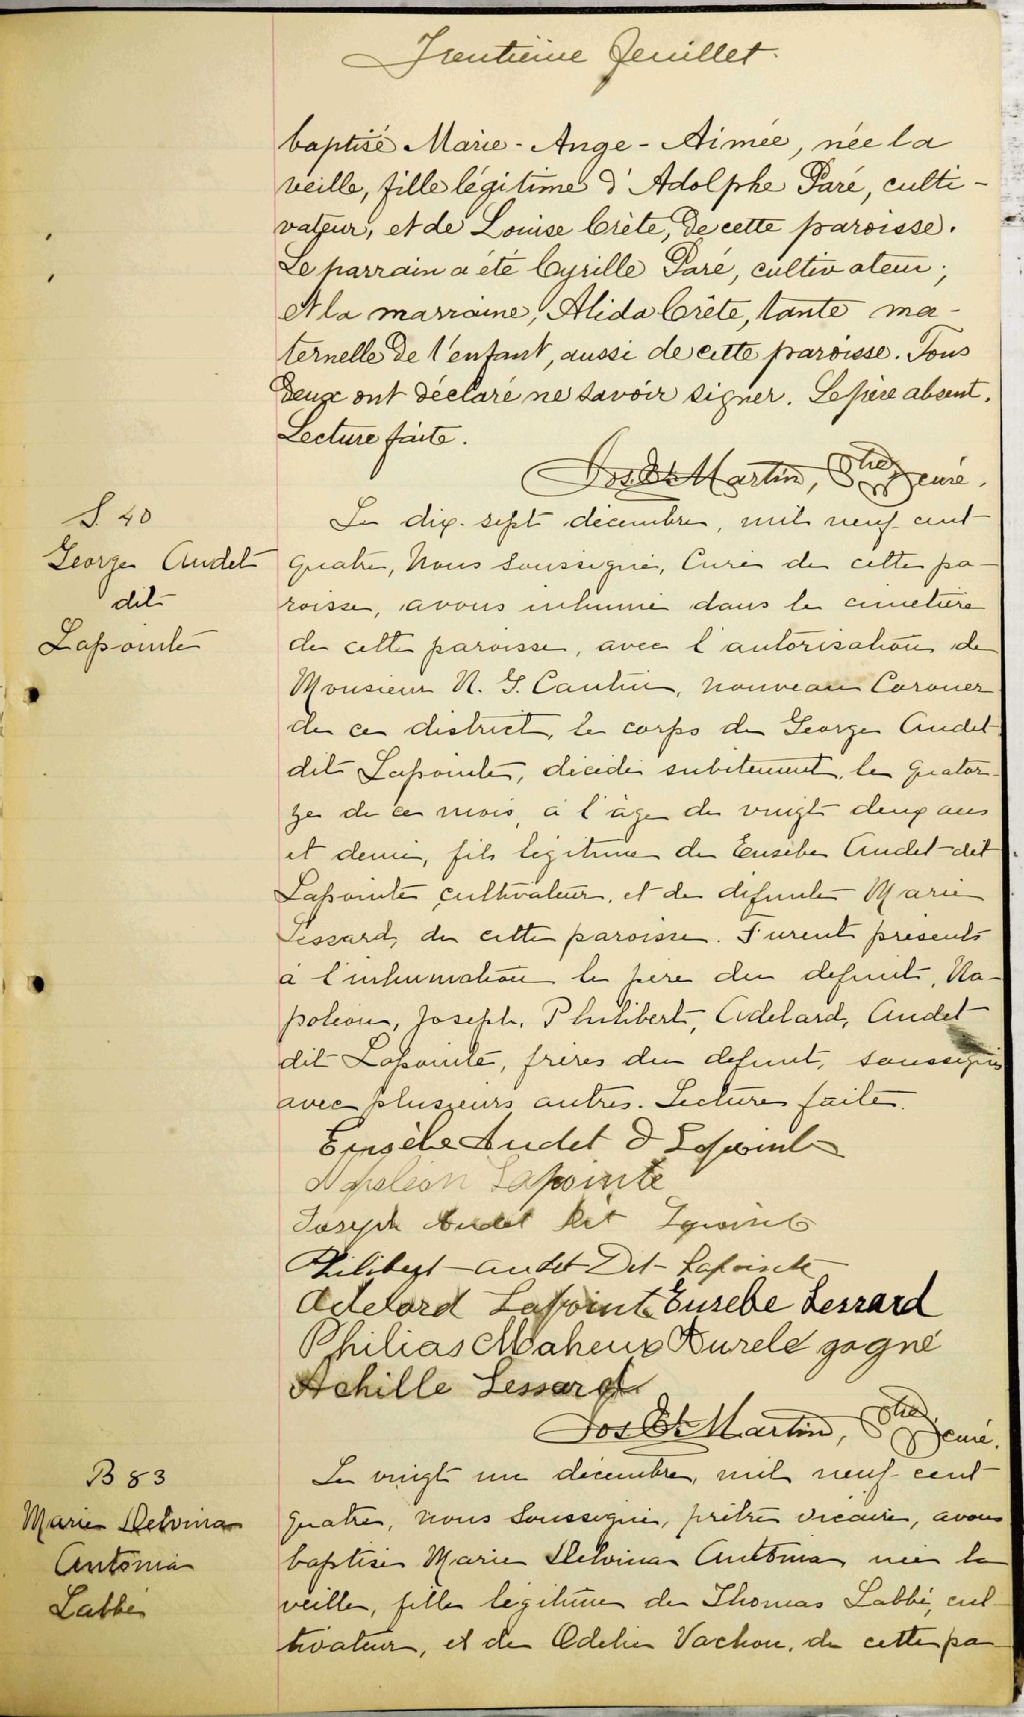 Trentième feuillet.
baptisé Marie-Ange-Aimée, née la
veille, fille légitime d'Adolphe Paré, culti-
vateur, et de Louise Crête, de cette paroisse.
Le parrain a été Cyrille Paré, cultivateur;
et la marraine, Alida Crête, tante ma-
ternelle de l'enfant, aussi de cette paroisse. Tous
deux ont déclaré ne savoir signer. Le père absent.
Lecture faite.
Jos. Et. Martin, Ptre, curé.
S. 40
George Audet
dit
Lapointe
Le dix-sept décembre, mil neuf cent
quatre, Nous soussigné, Curé de cette pa-
roisse, avons inhumé dans le cimetière
de cette paroisse, avec l'autorisation de
Monsieur N. G. Cantin, nouveau Coroner
de ce district, le corps de George Audet
dit Lapointe, décédé subitement, le quator-
ze de ce mois, à l'âge de vingt deux ans
et demi, fils légitime de Eusèbe Audet dit
Lapointe, cultivateur, et de défunte Marie
Lessard, de cette paroisse. Furent présents
à l'inhumation le père du défunt, Na-
poléon, Joseph, Philibert, Adélard, Audet
dit Lapointe, frères du défunt, soussignés
avec plusieurs autres. Lecture faite.
Eusèbe Audet d Lapointe
Napoléon Lapointe
Joseph Audet dit Lapointe
Philibert audet Dit Lapointe
Adelard Lapointe Eusebe Lessard
Philias Maheux Aurele gagné
Achille Lessard
Jos. Et. Martin, Ptre, curé.
B 83
Marie Delvina
Antonia
Labbé
Le vingt un décembre, mil neuf cent
quatre, nous soussigné, prêtre vicaire, avons
baptisé Marie Delvina Antonia née la
veille, fille légitime de Thomas Labbé, cul-
tivateur, et de Odélie Vachon, de cette pa-